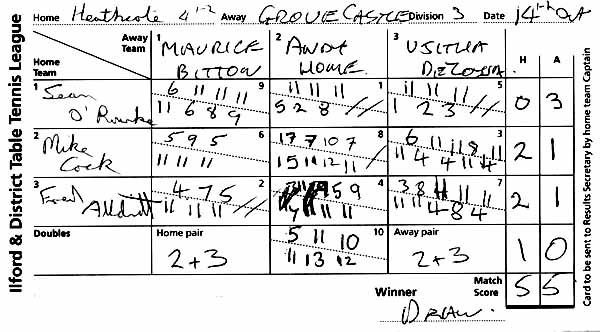 Ilford & District Table Tennis League
Home Heathcote 4 Away GROVE CASTLE Division 3 Date 14th Oct
Away Team 1 MAURICE BITTON 2 ANDY HOME 3 H A
Home Team
1 Sean O'Rourke 6 11 11 11 9 11 11 11 1 11 11 11 5 0 3
11 6 8 9 5 2 8 // 1 2 3 //
2 Mike Cock 5 9 5 6 17 7 10 7 8 6 11 18 11 3 2 1
11 11 11 15 11 12 11 11 4 4 11 4
3 Fred 4 7 5 2 5 9 4 3 8 11 11 7 2 1
11 11 11 // 11 11 11 4 8 4
Doubles Home pair 5 11 10 10 Away pair 1 0
2+3 11 13 12 2+3
Winner Match Score 5 5
DRAW
Card to be sent to Results Secretary by home team Captain